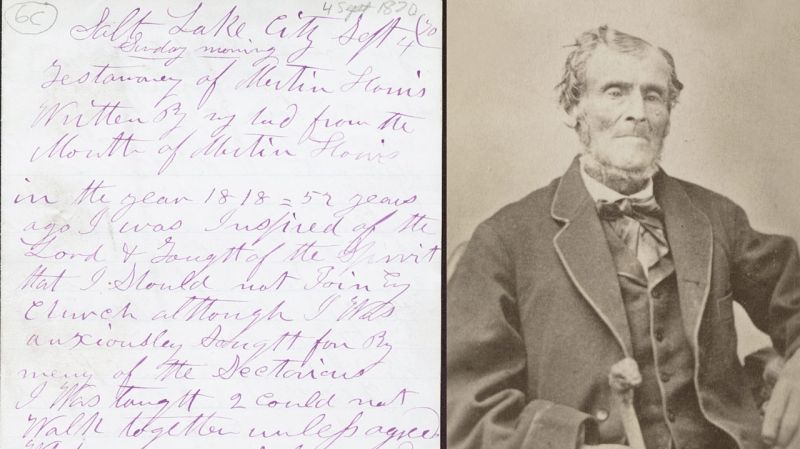 6C
4 Sept 1870
Salt Lake City Sept 4 70
Sunday morning
Testamoney of Martin Harris
Written By my hand from the
Mouth of Martin Harris
in the year 1818 = 52 years
ago I was Inspired of the
Lord & Taught of the Spirit
that I Should not Join Eny
Church although I Was
anxiousley Sought for By
meny of the Sectarians
I Was taught 2 could not
Walk together unless agreed